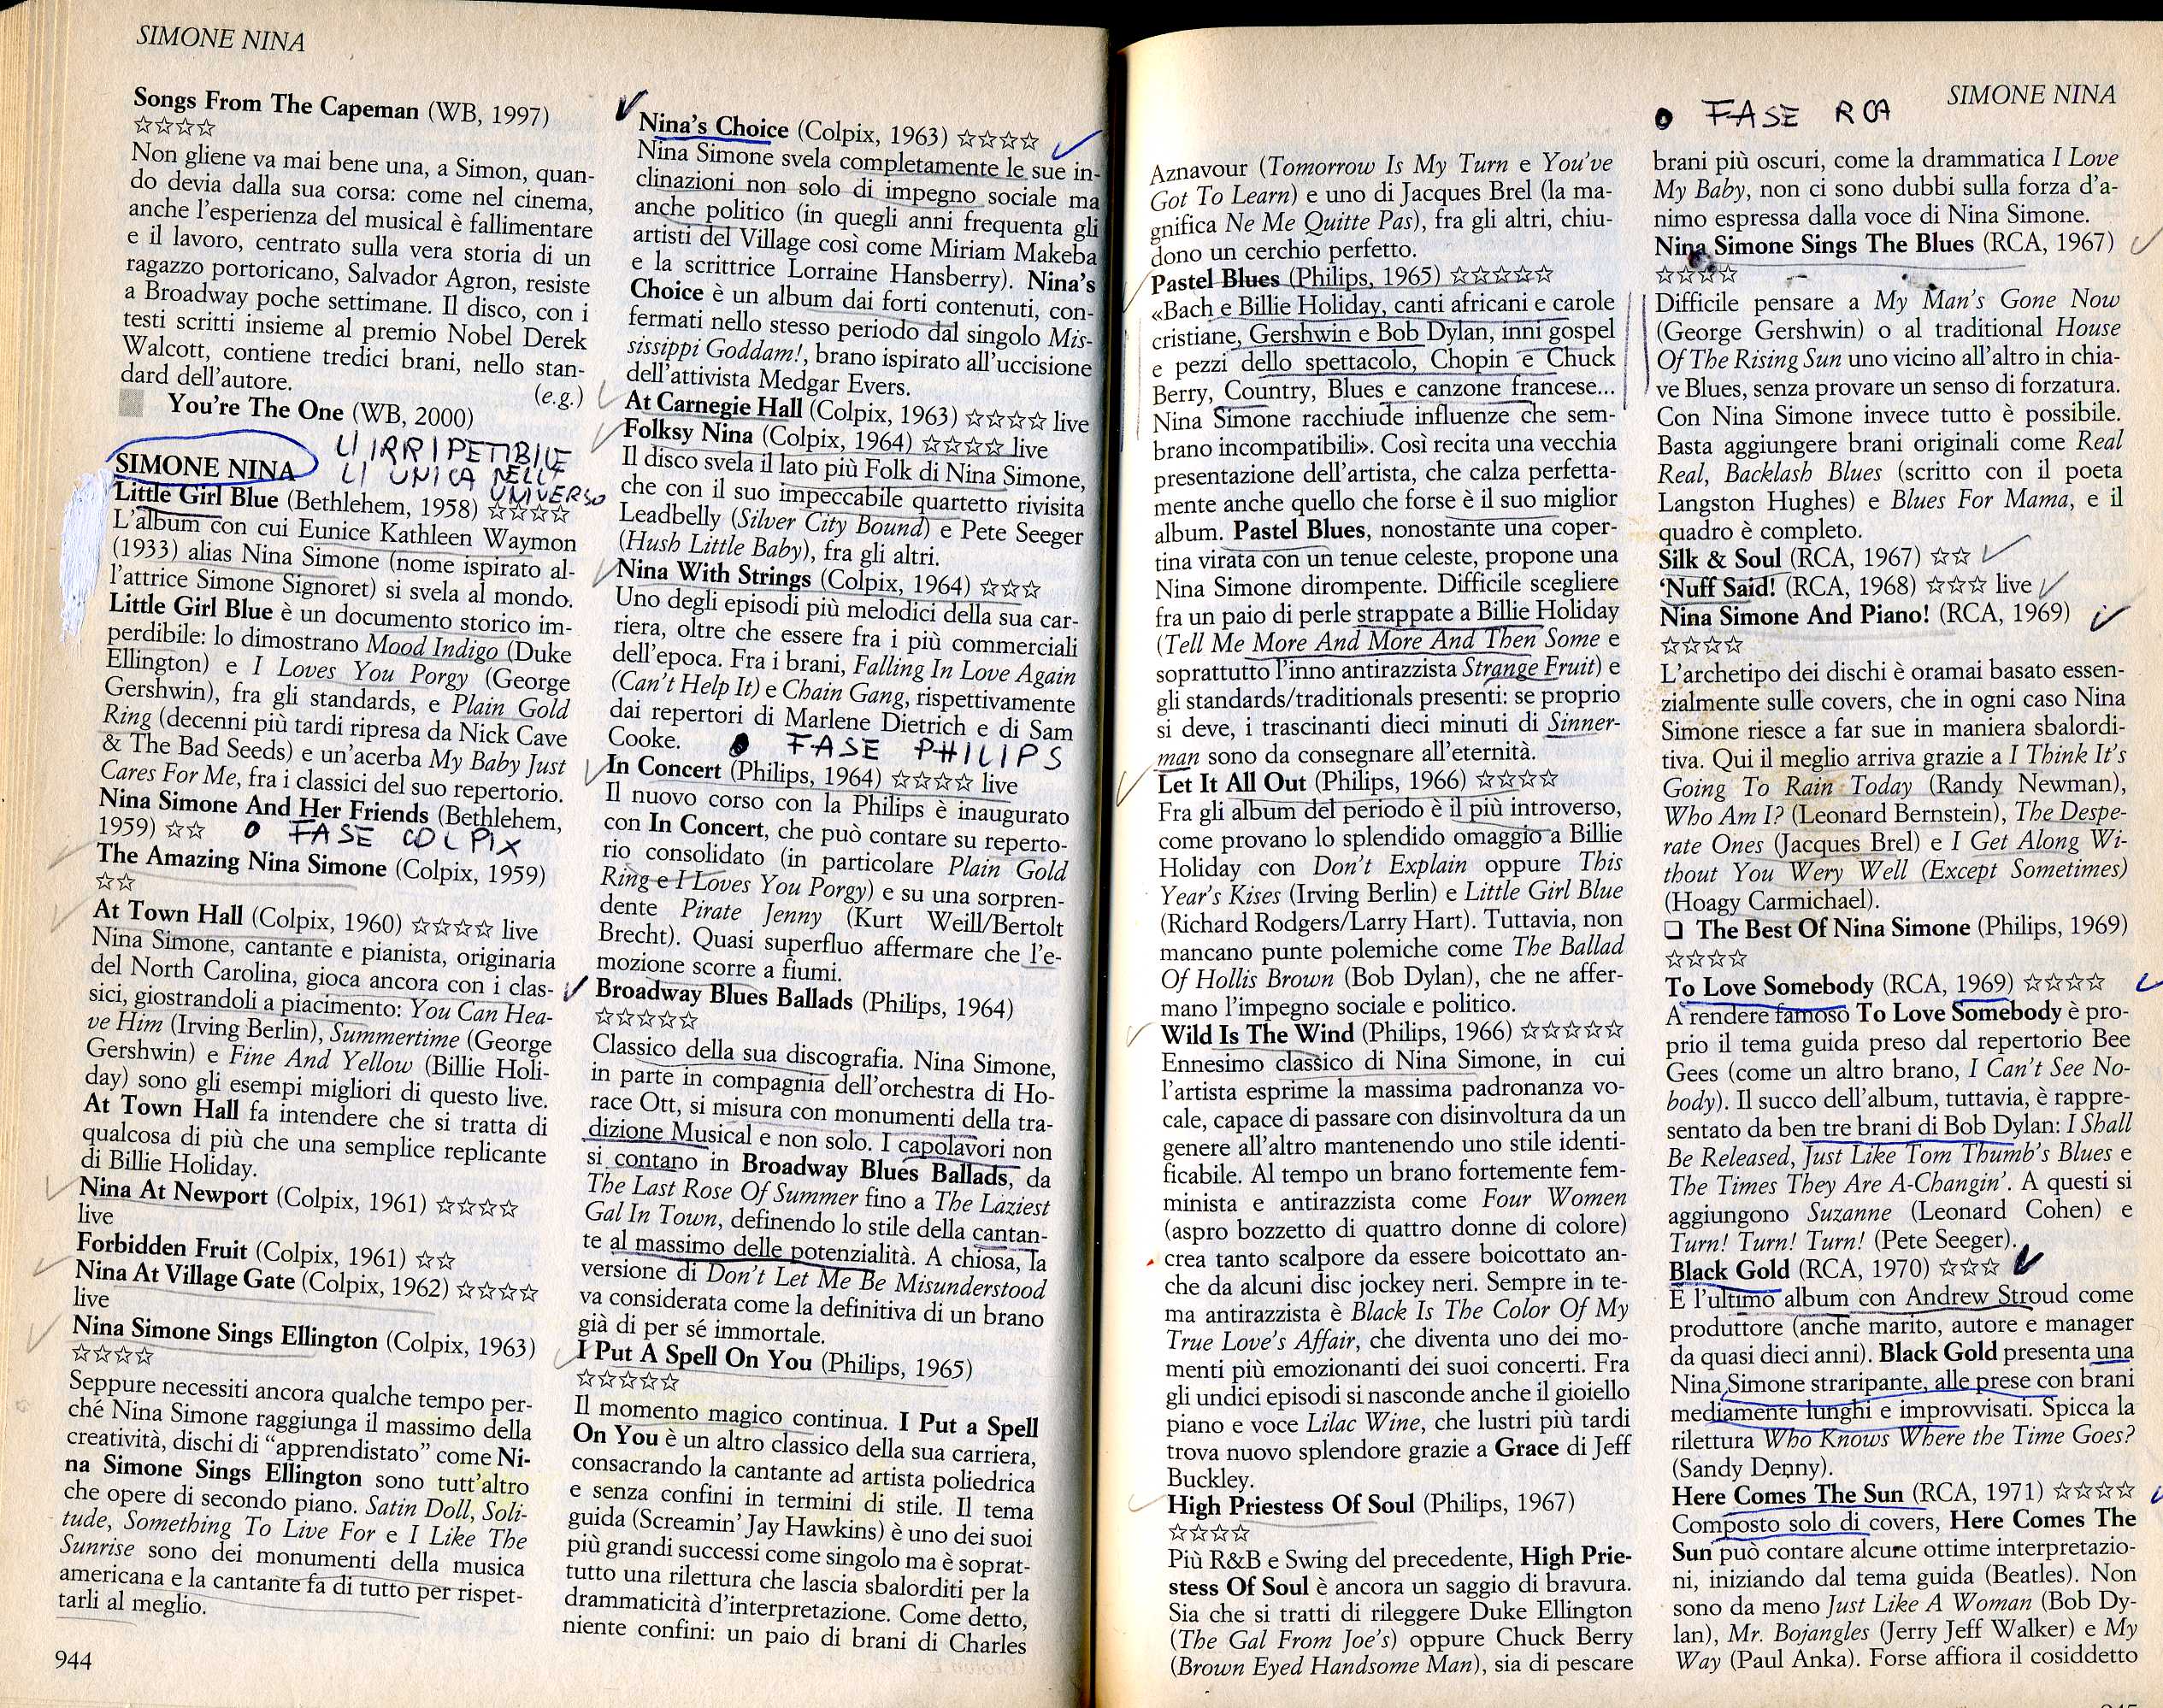 SIMONE NINA
Songs From The Capeman (WB, 1997)
☆☆☆☆
Non gliene va mai bene una, a Simon, quan-
do devia dalla sua corsa: come nel cinema,
anche l'esperienza del musical è fallimentare
e il lavoro, centrato sulla vera storia di un
ragazzo portoricano, Salvador Agron, resiste
a Broadway poche settimane. Il disco, con i
testi scritti insieme al premio Nobel Derek
Walcott, contiene tredici brani, nello stan-
dard dell'autore. (e.g.)
You're The One (WB, 2000)
IRRIPETIBILE
UNICA NELL'
UNIVERSO
SIMONE NINA
Little Girl Blue (Bethlehem, 1958) ☆☆☆☆
L'album con cui Eunice Kathleen Waymon
(1933) alias Nina Simone (nome ispirato al-
l'attrice Simone Signoret) si svela al mondo.
Little Girl Blue è un documento storico im-
perdibile: lo dimostrano Mood Indigo (Duke
Ellington) e I Loves You Porgy (George
Gershwin), fra gli standards, e Plain Gold
Ring (decenni più tardi ripresa da Nick Cave
& The Bad Seeds) e un'acerba My Baby Just
Cares For Me, fra i classici del suo repertorio.
Nina Simone And Her Friends (Bethlehem,
1959) ☆☆
FASE COLPIX
The Amazing Nina Simone (Colpix, 1959)
☆☆
At Town Hall (Colpix, 1960) ☆☆☆☆ live
Nina Simone, cantante e pianista, originaria
del North Carolina, gioca ancora con i clas-
sici, giostrandoli a piacimento: You Can Hea-
ve Him (Irving Berlin), Summertime (George
Gershwin) e Fine And Yellow (Billie Holi-
day) sono gli esempi migliori di questo live.
At Town Hall fa intendere che si tratta di
qualcosa di più che una semplice replicante
di Billie Holiday.
Nina At Newport (Colpix, 1961) ☆☆☆☆
live
Forbidden Fruit (Colpix, 1961) ☆☆
Nina At Village Gate (Colpix, 1962) ☆☆☆☆
live
Nina Simone Sings Ellington (Colpix, 1963)
☆☆☆☆
Seppure necessiti ancora qualche tempo per-
ché Nina Simone raggiunga il massimo della
creatività, dischi di "apprendistato" come Ni-
na Simone Sings Ellington sono tutt'altro
che opere di secondo piano. Satin Doll, Soli-
tude, Something To Live For e I Like The
Sunrise sono dei monumenti della musica
americana e la cantante fa di tutto per rispet-
tarli al meglio.
944
Nina's Choice (Colpix, 1963) ☆☆☆☆
Nina Simone svela completamente le sue in-
clinazioni non solo di impegno sociale ma
anche politico (in quegli anni frequenta gli
artisti del Village così come Miriam Makeba
e la scrittrice Lorraine Hansberry). Nina's
Choice è un album dai forti contenuti, con-
fermati nello stesso periodo dal singolo Mis-
sissippi Goddam!, brano ispirato all'uccisione
dell'attivista Medgar Evers.
At Carnegie Hall (Colpix, 1963) ☆☆☆☆ live
Folksy Nina (Colpix, 1964) ☆☆☆☆ live
Il disco svela il lato più Folk di Nina Simone,
che con il suo impeccabile quartetto rivisita
Leadbelly (Silver City Bound) e Pete Seeger
(Hush Little Baby), fra gli altri.
Nina With Strings (Colpix, 1964) ☆☆☆
Uno degli episodi più melodici della sua car-
riera, oltre che essere fra i più commerciali
dell'epoca. Fra i brani, Falling In Love Again
(Can't Help It) e Chain Gang, rispettivamente
dai repertori di Marlene Dietrich e di Sam
Cooke.
FASE PHILIPS
In Concert (Philips, 1964) ☆☆☆☆ live
Il nuovo corso con la Philips è inaugurato
con In Concert, che può contare su reperto-
rio consolidato (in particolare Plain Gold
Ring e I Loves You Porgy) e su una sorpren-
dente Pirate Jenny (Kurt Weill/Bertolt
Brecht). Quasi superfluo affermare che l'e-
mozione scorre a fiumi.
Broadway Blues Ballads (Philips, 1964)
☆☆☆☆☆
Classico della sua discografia. Nina Simone,
in parte in compagnia dell'orchestra di Ho-
race Ott, si misura con monumenti della tra-
dizione Musical e non solo. I capolavori non
si contano in Broadway Blues Ballads, da
The Last Rose Of Summer fino a The Laziest
Gal In Town, definendo lo stile della cantan-
te al massimo delle potenzialità. A chiosa, la
versione di Don't Let Me Be Misunderstood
va considerata come la definitiva di un brano
già di per sé immortale.
I Put A Spell On You (Philips, 1965)
☆☆☆☆☆
Il momento magico continua. I Put a Spell
On You è un altro classico della sua carriera,
consacrando la cantante ad artista poliedrica
e senza confini in termini di stile. Il tema
guida (Screamin' Jay Hawkins) è uno dei suoi
più grandi successi come singolo ma è soprat-
tutto una rilettura che lascia sbalorditi per la
drammaticità d'interpretazione. Come detto,
niente confini: un paio di brani di Charles
SIMONE NINA
Aznavour (Tomorrow Is My Turn e You've
Got To Learn) e uno di Jacques Brel (la ma-
gnifica Ne Me Quitte Pas), fra gli altri, chiu-
dono un cerchio perfetto.
Pastel Blues (Philips, 1965) ☆☆☆☆☆
«Bach e Billie Holiday, canti africani e carole
cristiane, Gershwin e Bob Dylan, inni gospel
e pezzi dello spettacolo, Chopin e Chuck
Berry, Country, Blues e canzone francese...
Nina Simone racchiude influenze che sem-
brano incompatibili». Così recita una vecchia
presentazione dell'artista, che calza perfetta-
mente anche quello che forse è il suo miglior
album. Pastel Blues, nonostante una coper-
tina virata con un tenue celeste, propone una
Nina Simone dirompente. Difficile scegliere
fra un paio di perle strappate a Billie Holiday
(Tell Me More And More And Then Some e
soprattutto l'inno antirazzista Strange Fruit) e
gli standards/traditionals presenti: se proprio
si deve, i trascinanti dieci minuti di Sinner-
man sono da consegnare all'eternità.
Let It All Out (Philips, 1966) ☆☆☆☆
Fra gli album del periodo è il più introverso,
come provano lo splendido omaggio a Billie
Holiday con Don't Explain oppure This
Year's Kises (Irving Berlin) e Little Girl Blue
(Richard Rodgers/Larry Hart). Tuttavia, non
mancano punte polemiche come The Ballad
Of Hollis Brown (Bob Dylan), che ne affer-
mano l'impegno sociale e politico.
Wild Is The Wind (Philips, 1966) ☆☆☆☆☆
Ennesimo classico di Nina Simone, in cui
l'artista esprime la massima padronanza vo-
cale, capace di passare con disinvoltura da un
genere all'altro mantenendo uno stile identi-
ficabile. Al tempo un brano fortemente fem-
minista e antirazzista come Four Women
(aspro bozzetto di quattro donne di colore)
crea tanto scalpore da essere boicottato an-
che da alcuni disc jockey neri. Sempre in te-
ma antirazzista è Black Is The Color Of My
True Love's Affair, che diventa uno dei mo-
menti più emozionanti dei suoi concerti. Fra
gli undici episodi si nasconde anche il gioiello
piano e voce Lilac Wine, che lustri più tardi
trova nuovo splendore grazie a Grace di Jeff
Buckley.
High Priestess Of Soul (Philips, 1967)
☆☆☆☆
Più R&B e Swing del precedente, High Prie-
stess Of Soul è ancora un saggio di bravura.
Sia che si tratti di rileggere Duke Ellington
(The Gal From Joe's) oppure Chuck Berry
(Brown Eyed Handsome Man), sia di pescare
FASE RCA
brani più oscuri, come la drammatica I Love
My Baby, non ci sono dubbi sulla forza d'a-
nimo espressa dalla voce di Nina Simone.
Nina Simone Sings The Blues (RCA, 1967)
☆☆☆☆
Difficile pensare a My Man's Gone Now
(George Gershwin) o al traditional House
Of The Rising Sun uno vicino all'altro in chia-
ve Blues, senza provare un senso di forzatura.
Con Nina Simone invece tutto è possibile.
Basta aggiungere brani originali come Real
Real, Backlash Blues (scritto con il poeta
Langston Hughes) e Blues For Mama, e il
quadro è completo.
Silk & Soul (RCA, 1967) ☆☆
'Nuff Said! (RCA, 1968) ☆☆☆ live
Nina Simone And Piano! (RCA, 1969)
☆☆☆☆
L'archetipo dei dischi è oramai basato essen-
zialmente sulle covers, che in ogni caso Nina
Simone riesce a far sue in maniera sbalordi-
tiva. Qui il meglio arriva grazie a I Think It's
Going To Rain Today (Randy Newman),
Who Am I? (Leonard Bernstein), The Despe-
rate Ones (Jacques Brel) e I Get Along Wi-
thout You Wery Well (Except Sometimes)
(Hoagy Carmichael).
❑ The Best Of Nina Simone (Philips, 1969)
☆☆☆☆
To Love Somebody (RCA, 1969) ☆☆☆☆
A rendere famoso To Love Somebody è pro-
prio il tema guida preso dal repertorio Bee
Gees (come un altro brano, I Can't See No-
body). Il succo dell'album, tuttavia, è rappre-
sentato da ben tre brani di Bob Dylan: I Shall
Be Released, Just Like Tom Thumb's Blues e
The Times They Are A-Changin'. A questi si
aggiungono Suzanne (Leonard Cohen) e
Turn! Turn! Turn! (Pete Seeger).
Black Gold (RCA, 1970) ☆☆☆
È l'ultimo album con Andrew Stroud come
produttore (anche marito, autore e manager
da quasi dieci anni). Black Gold presenta una
Nina Simone straripante, alle prese con brani
mediamente lunghi e improvvisati. Spicca la
rilettura Who Knows Where the Time Goes?
(Sandy Denny).
Here Comes The Sun (RCA, 1971) ☆☆☆☆
Composto solo di covers, Here Comes The
Sun può contare alcune ottime interpretazio-
ni, iniziando dal tema guida (Beatles). Non
sono da meno Just Like A Woman (Bob Dy-
lan), Mr. Bojangles (Jerry Jeff Walker) e My
Way (Paul Anka). Forse affiora il cosiddetto